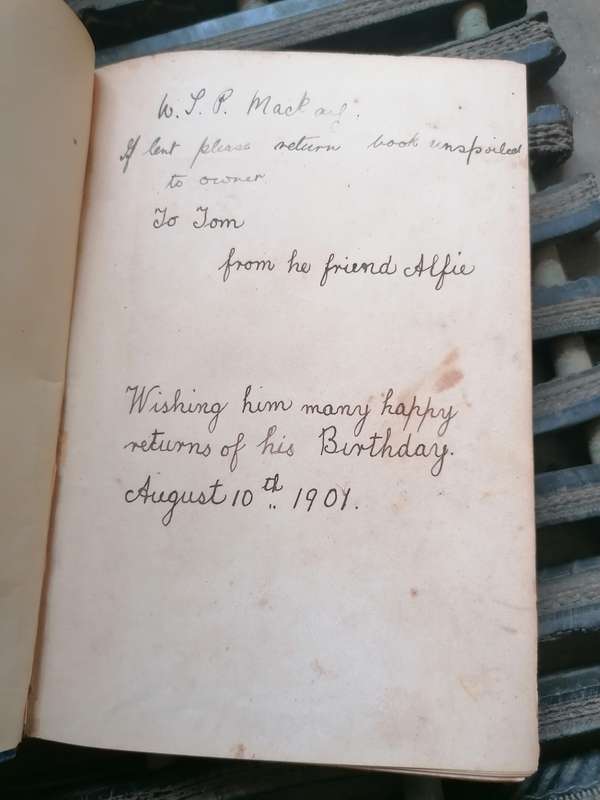 W. S. P. Mack
If lent please return book unspoiled
to owner
To Tom
from he friend Alfie
Wishing him many happy
returns of his Birthday.
August 10th 1901.